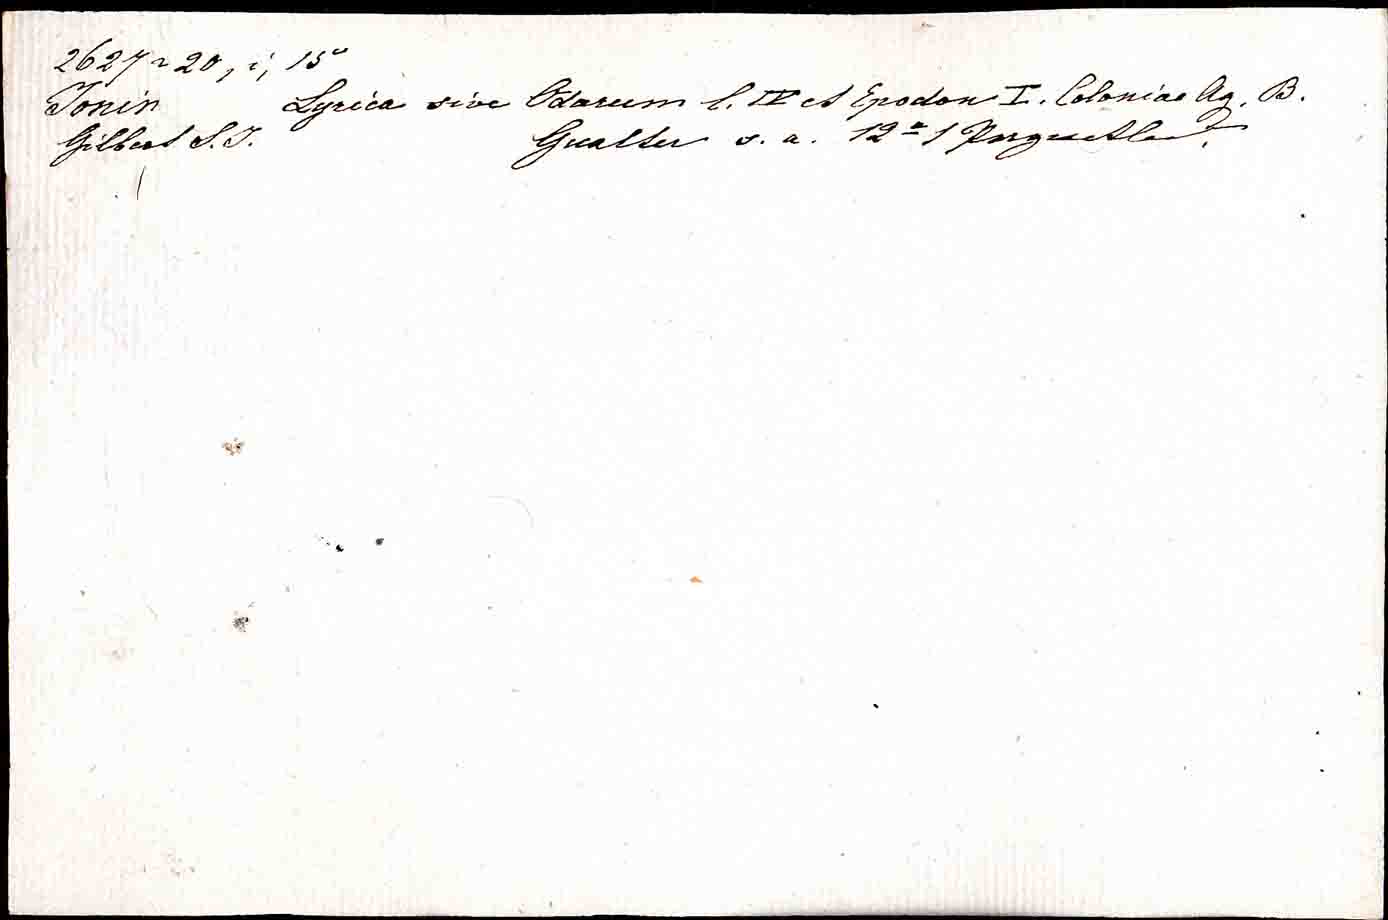 2627 n 20, i, 15°
Jonin Lyrica sive Odarum l. IV et Epodon I. Coloniae Ag. B.
Gilbert S. J. Gualter s. a. 12° 1